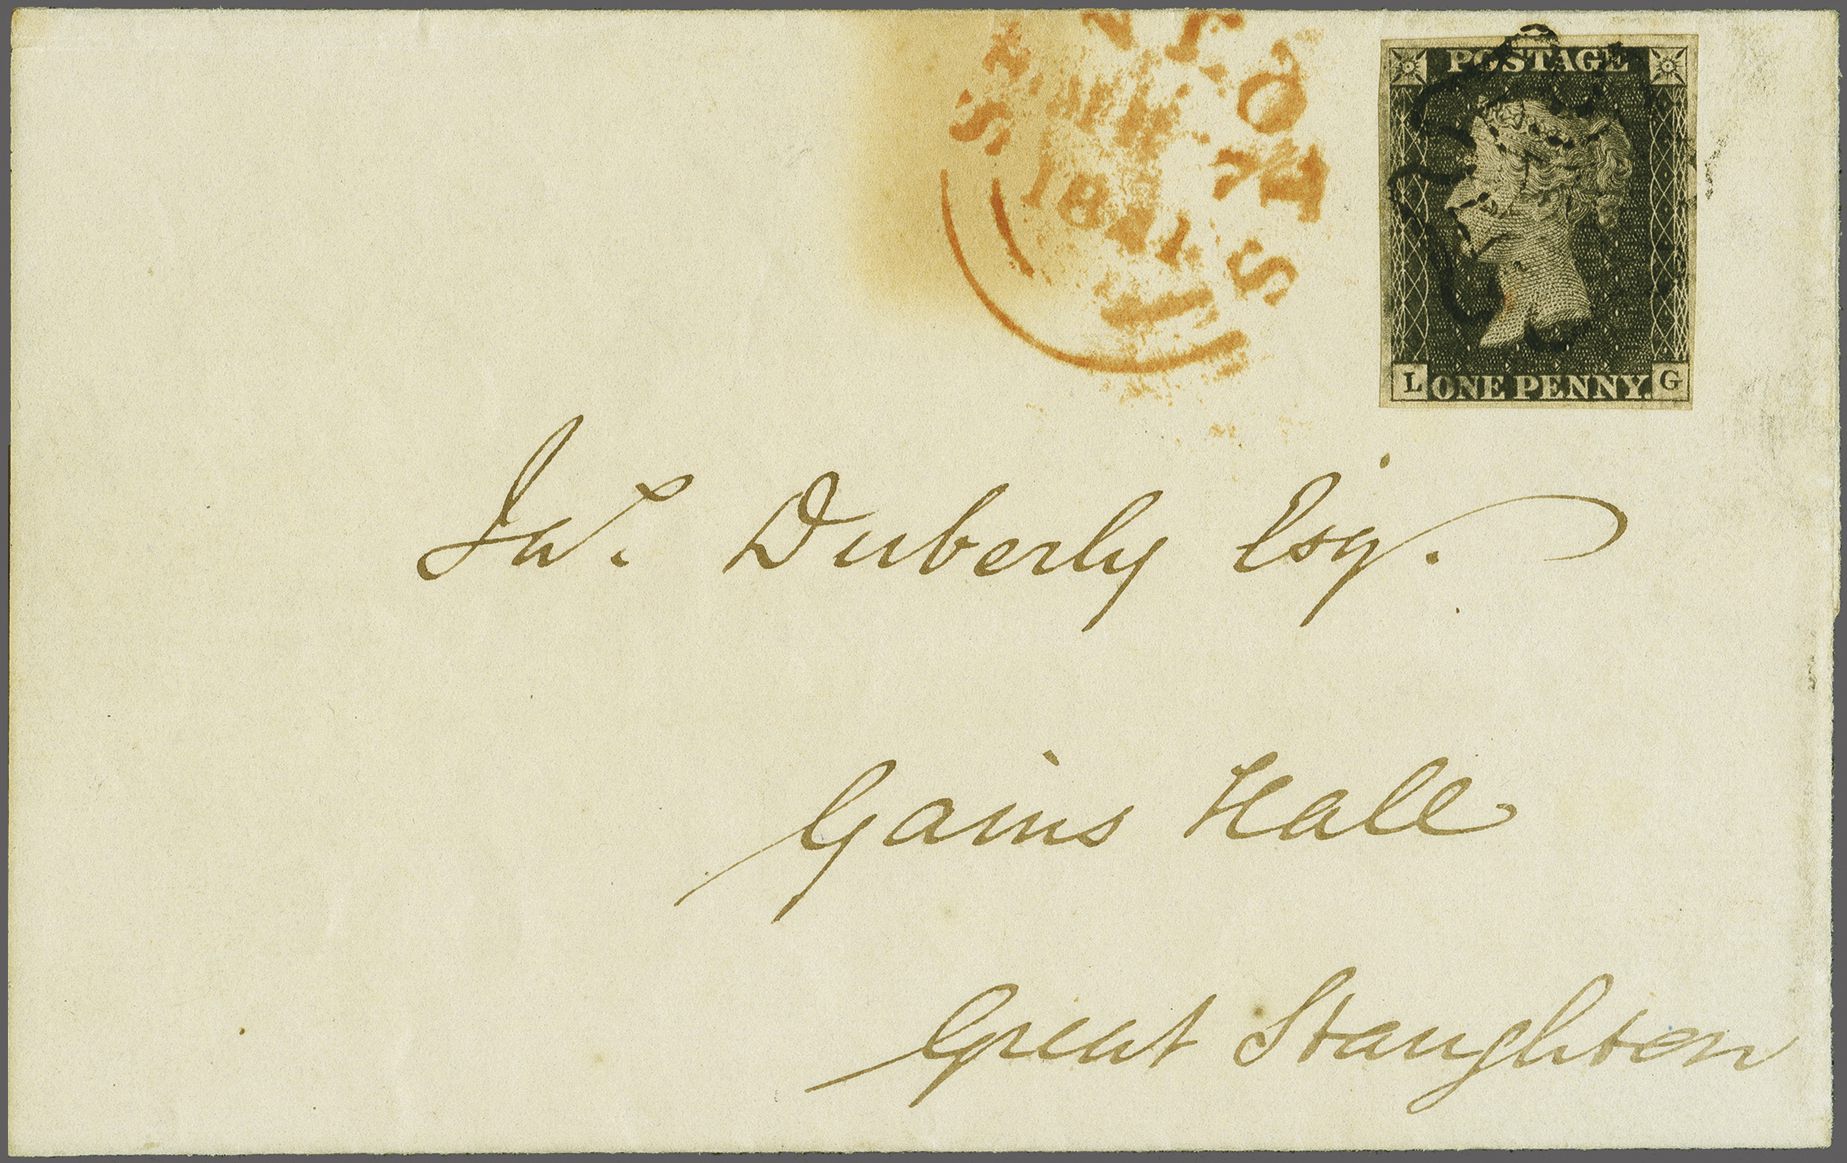 POSTAGE
L ONE PENNY. G
ST NEOTS
1841
Jas. Duberly Esq.
Gains Hall
Great Staughton